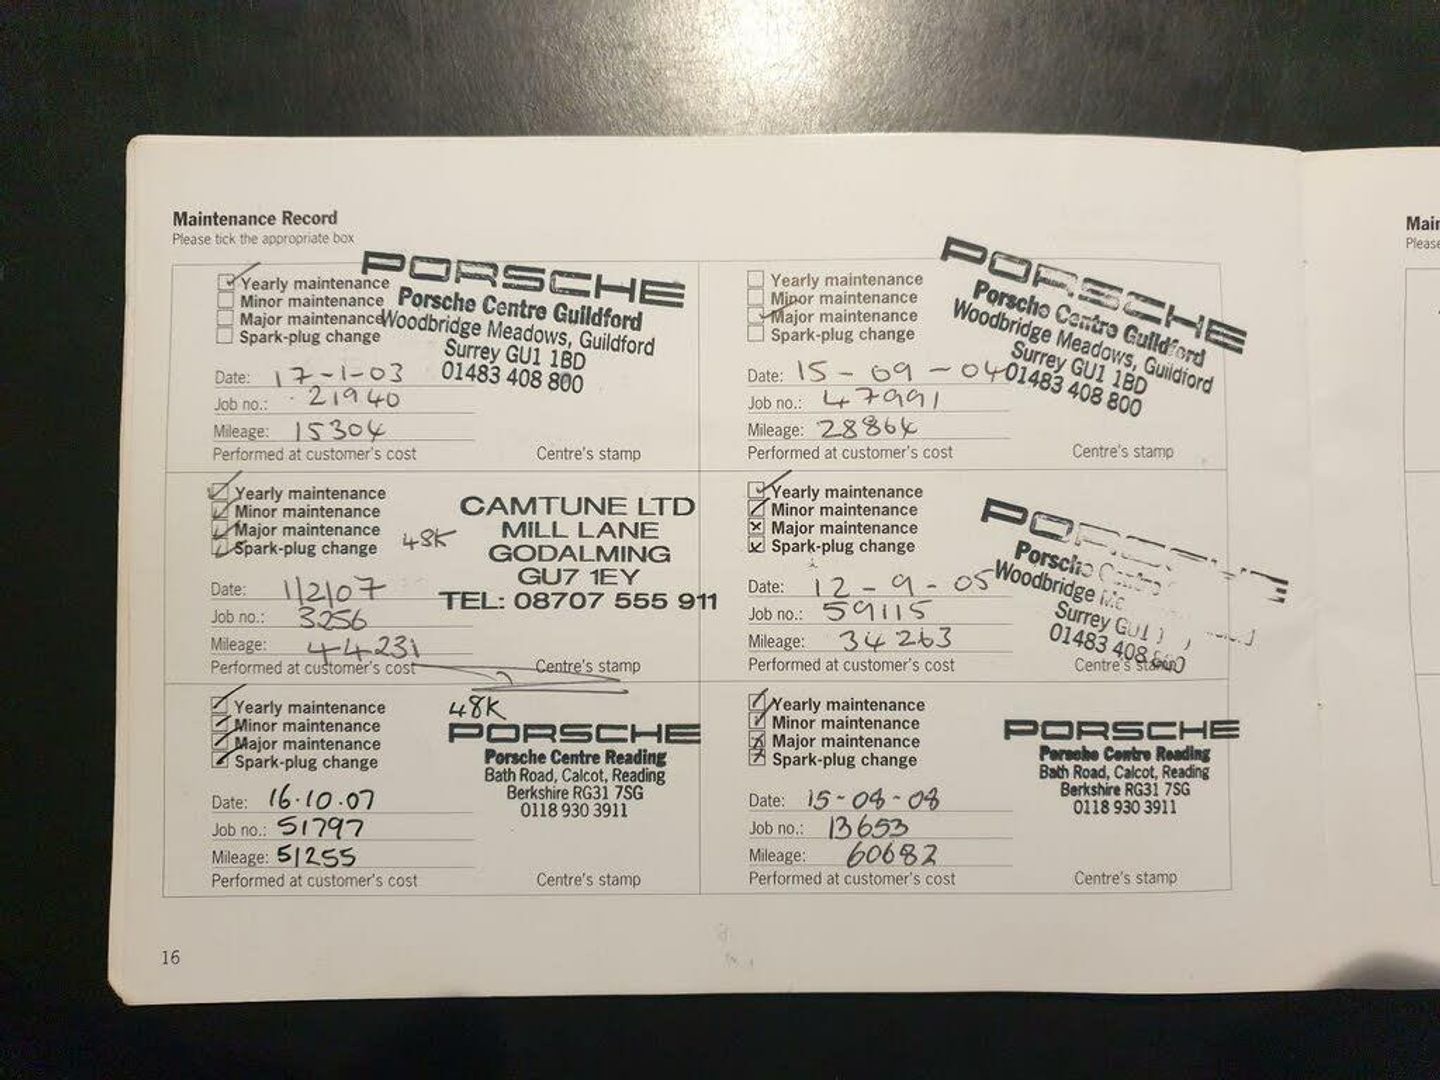 Maintenance Record
Please tick the appropriate box
Yearly maintenance
Minor maintenance
Major maintenance
Spark-plug change
PORSCHE
Porsche Centre Guildford
Woodbridge Meadows, Guildford
Surrey GU1 1BD
01483 408 800
Date: 17-1-03
Job no.: 21940
Mileage: 15304
Performed at customer's cost
Centre's stamp
Yearly maintenance
Minor maintenance
Major maintenance
Spark-plug change
PORSCHE
Porsche Centre Guildford
Woodbridge Meadows, Guildford
Surrey GU1 1BD
01483 408 800
Date: 15-09-04
Job no.: 47991
Mileage: 28864
Performed at customer's cost
Centre's stamp
Yearly maintenance
Minor maintenance
Major maintenance
Spark-plug change
48K
CAMTUNE LTD
MILL LANE
GODALMING
GU7 1EY
TEL: 08707 555 911
Date: 1/2/07
Job no.: 3256
Mileage: 44231
Performed at customer's cost
Centre's stamp
Yearly maintenance
Minor maintenance
Major maintenance
Spark-plug change
Porsche
Woodbridge
Surrey
01483 408
Date: 12-9-05
Job no.: 59115
Mileage: 34263
Performed at customer's cost
Centre's stamp
Yearly maintenance
Minor maintenance
Major maintenance
Spark-plug change
48K
PORSCHE
Porsche Centre Reading
Bath Road, Calcot, Reading
Berkshire RG31 7SG
0118 930 3911
Date: 16.10.07
Job no.: 51797
Mileage: 51255
Performed at customer's cost
Centre's stamp
Yearly maintenance
Minor maintenance
Major maintenance
Spark-plug change
PORSCHE
Porsche Centre Reading
Bath Road, Calcot, Reading
Berkshire RG31 7SG
0118 930 3911
Date: 15-08-08
Job no.: 13653
Mileage: 60682
Performed at customer's cost
Centre's stamp
16